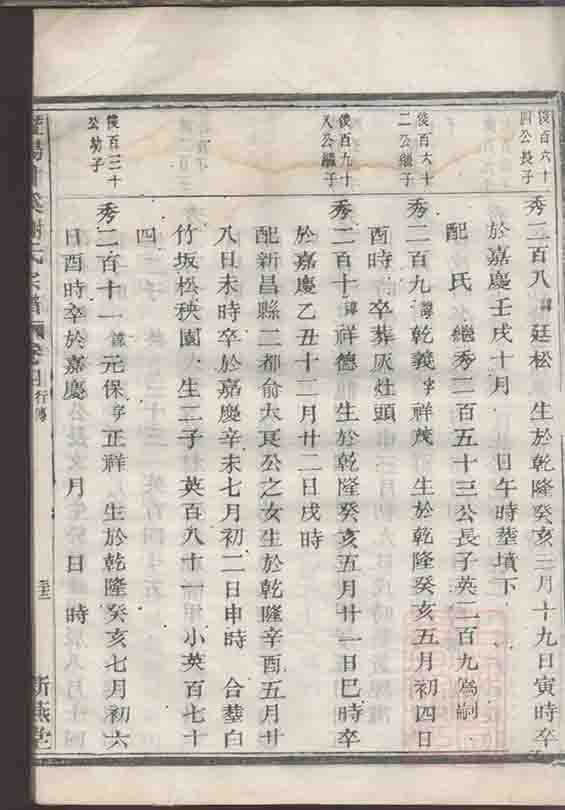 俊百六十四公長子
秀二百八諱廷松 生於乾隆癸亥三月十九日寅時卒
於嘉慶壬戌十月 日午時葬墳下
配 氏 繼秀二百五十三公長子英二百九為嗣
俊百六十二公繼子
秀二百九諱乾義字祥茂 生於乾隆癸亥五月初四日
酉時 卒葬灰灶頭
俊百九十八公繼子
秀二百十諱祥德 生於乾隆癸亥五月廿一日巳時卒
於嘉慶乙丑十二月廿二日戌時
配新昌縣二都俞大良公之女生於乾隆辛酉五月廿
八日未時卒於嘉慶辛未七月初二日申時 合塟白
竹坂松秧園 生二子 英百八十一 小英百七十
四
俊百三十公幼子
秀二百十一諱元保字正祥 生於乾隆癸亥七月初六
日酉時卒於嘉慶 年 月 日 時
氏宗譜 卷 行傳